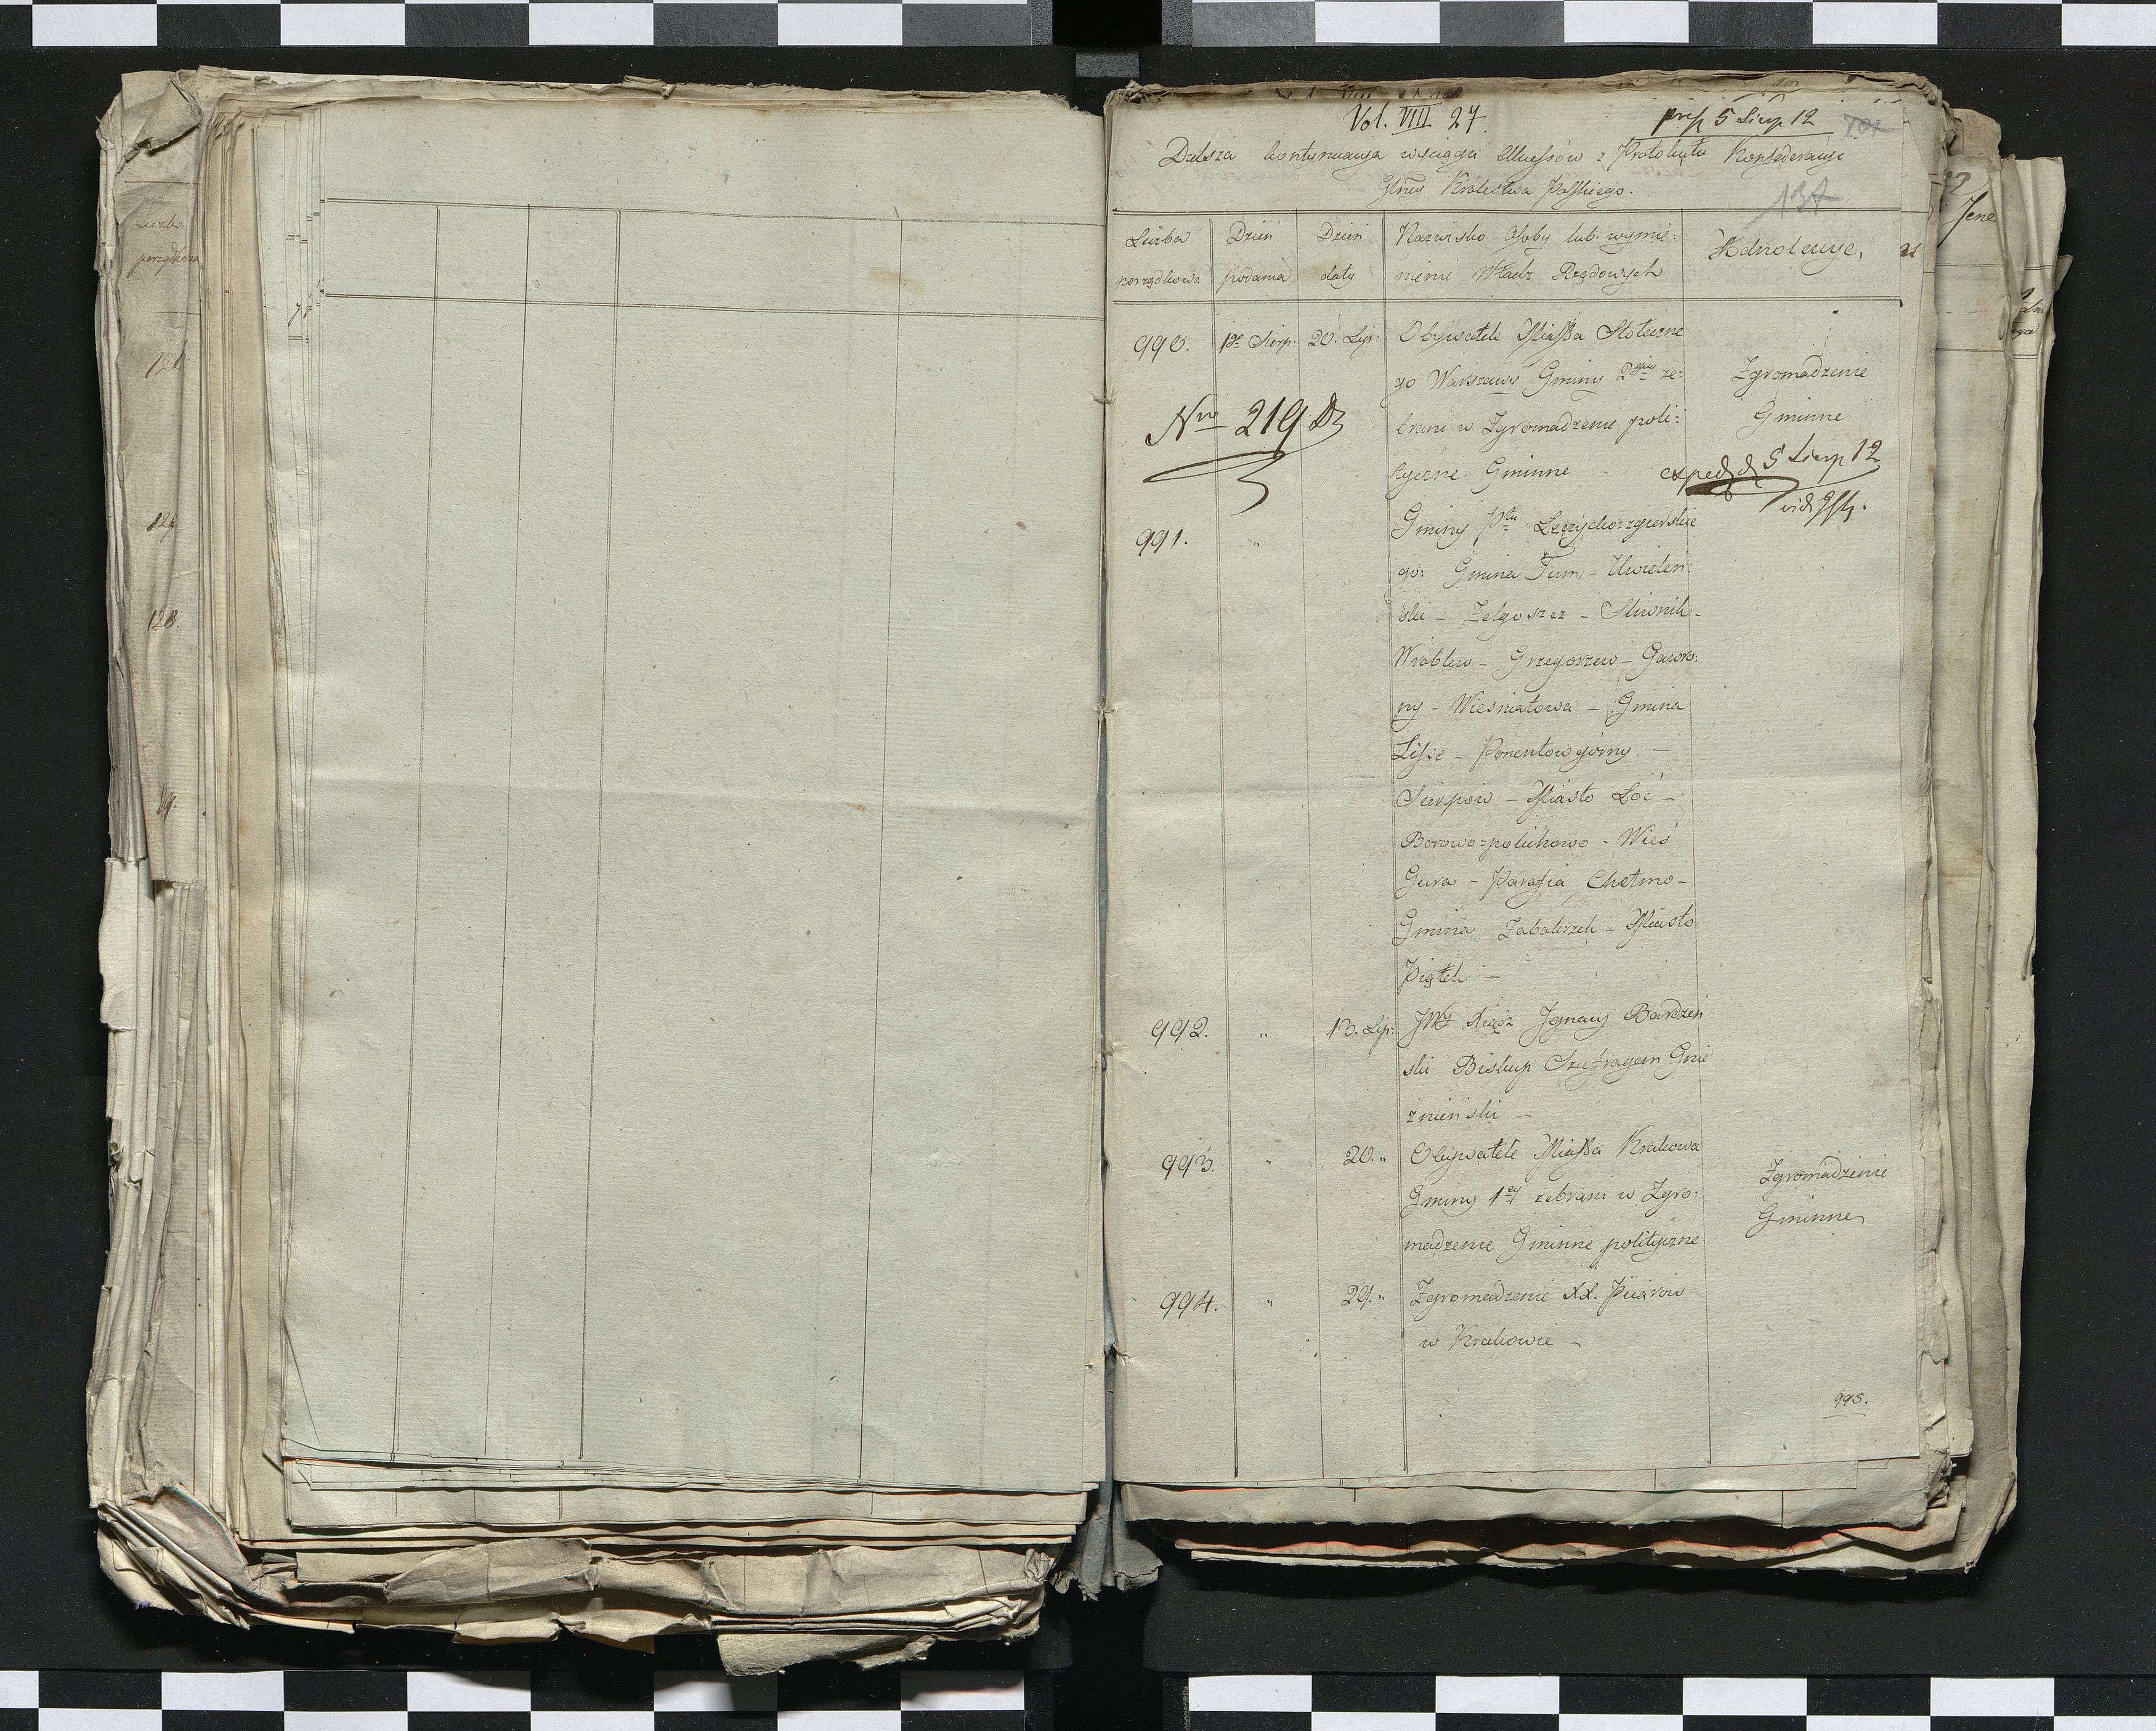 Vol. VIII 27
prs 5 Sierp 12
Dalsza kontynuacya wyciągu Akcessów z Protokułu Konfederacyi
Głney Królestwa Polskiego.
137
Liczba porządkowa
Dzień podania
Dzień daty
Nazwisko Osoby lub wymie:
nienie Władz Rządowych
Adnotacye,
990. 1o Sierp: 20. Lip: Obywatele Miasta Stołeczne
go Warszawy Gminy 2giey ze:
brani w Zgromadzenie poli:
tyczne Gminne
Zgromadzenie
Gminne
Nro 219 D
exped d 5 Sierp 12
991. " Gminy Ptu Łęczycko-zgierskie
go: Gmina Tum - Kwieleń:
ski - Zelgoszcz - Sliwnik -
Wroblew - Grzegorzew - Gawro:
ny - Wieśniatowa - Gmina
Lisse - Ponentow górny -
Sierpow - Miasto Łoć -
Borowo=polichowo - Wieś
Gura - Parafia Chełmo -
Gmina Zabokrzek - Miasto
Piątek -
992. " 13. Lip: JWy Xiądz Ignacy Bardzeń
ski Biskup Szufragan Gnie
znieński -
993. " 20. " Obywatele Miasta Krakowa
Gminy 1ey zebrani w Zgro:
madzenie Gminne polityczne
Zgromadzenie
Gminne
994. " 29. " Zgromadzenie XX. Piiarow
w Krakowie -
995.
128.